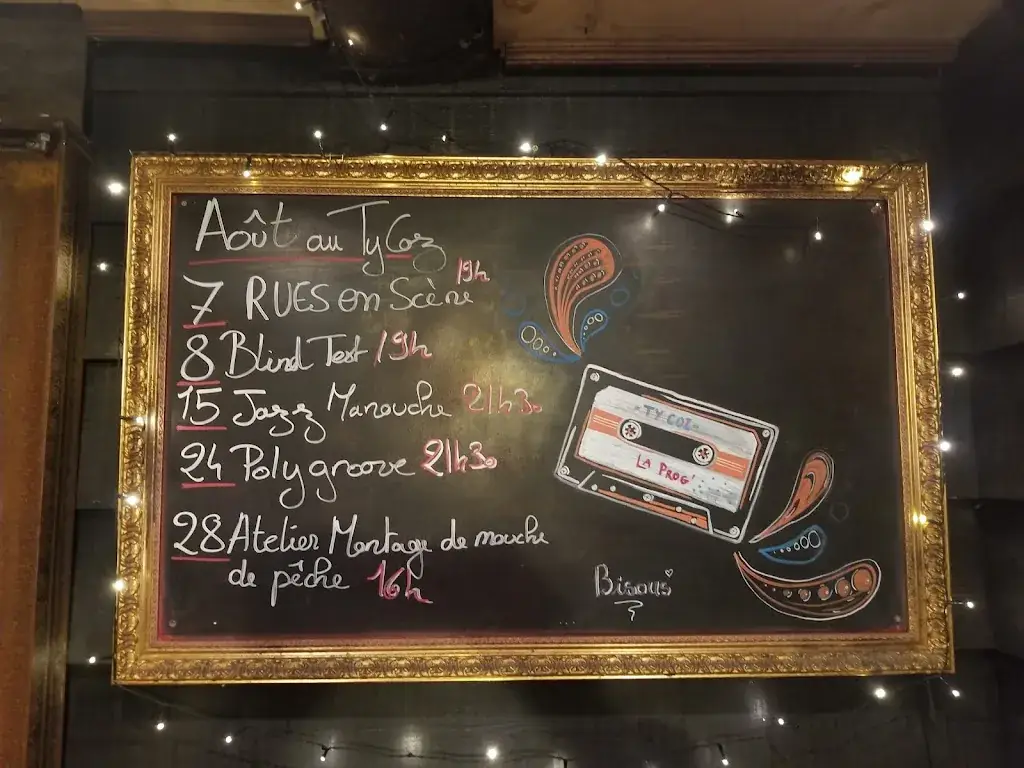 Août au Ty Coz
7 RUES en Scène 19h
8 Blind Test 19h
15 Jazz Manouche 21h30
24 Polygroove 21h30
28 Atelier Montage de mouche
de pêche 16h
TY COZ
LA PROG'
Bisous